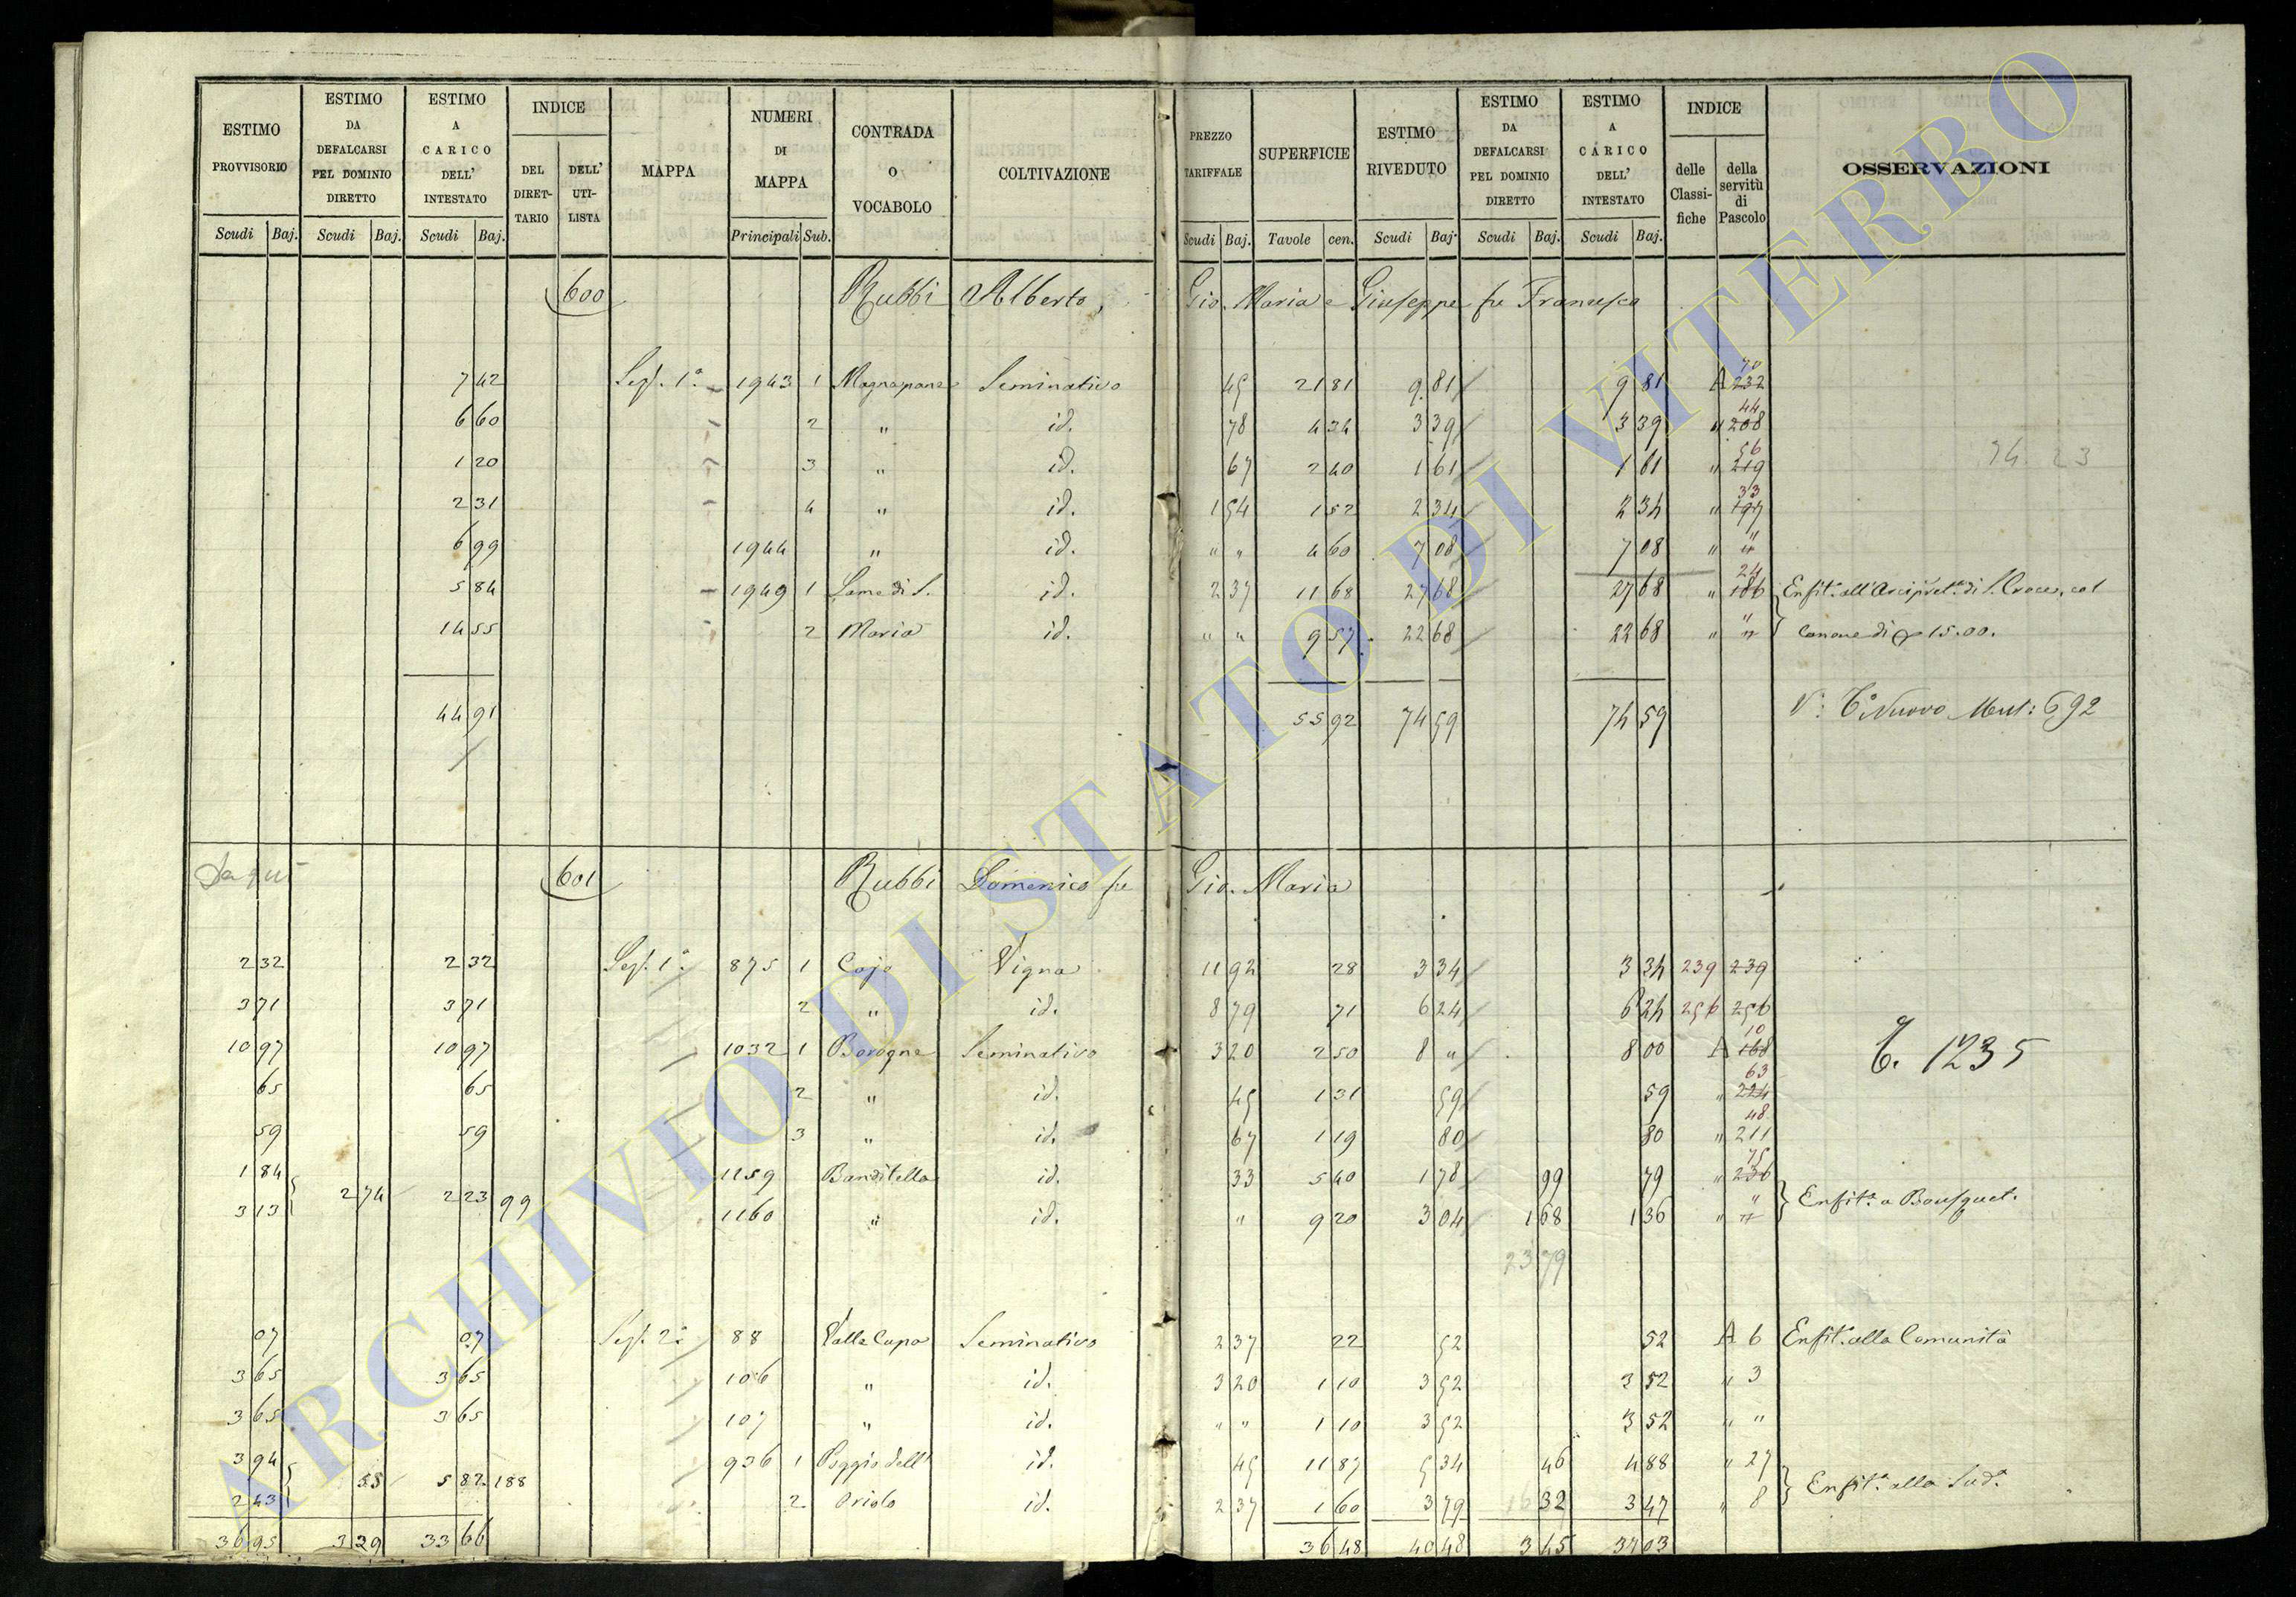 ESTIMO PROVVISORIO | ESTIMO DA DEFALCARSI PEL DOMINIO DIRETTO | ESTIMO A CARICO DELL' INTESTATO | INDICE DEL DIRETTARIO | DELL' UTILISTA | MAPPA | NUMERI DI MAPPA | CONTRADA O VOCABOLO | COLTIVAZIONE | PREZZO TARIFFALE | SUPERFICIE | ESTIMO RIVEDUTO | ESTIMO DA DEFALCARSI PEL DOMINIO DIRETTO | ESTIMO A CARICO DELL' INTESTATO | INDICE delle Classifiche | della servitù di Pascolo | OSSERVAZIONI
Scudi Baj. | Scudi Baj. | Scudi Baj. | Principali Sub. | Scudi Baj. | Tavole cen. | Scudi Baj. | Scudi Baj. | Scudi Baj.
600 Rubbi Alberto, Gio. Maria e Giuseppe fu Francesco
7 42 | Sez. 1a | 1943 1 | Magnapane | Seminativo | 45 | 21 81 | 9 81 | 9 81 | A 232 70
6 60 | 2 | " | id. | 78 | 4 34 | 3 39 | 3 39 | " 208 44
1 20 | 3 | " | id. | 67 | 2 40 | 1 61 | 1 61 | " 219 56
74. 23
2 31 | 4 | " | id. | 1 54 | 1 52 | 2 34 | 2 34 | " 197 33
6 99 | 1944 | " | id. | " " | 4 60 | 7 08 | 7 08 | " "
5 84 | 1949 1 | Lame di S. | id. | 2 37 | 11 68 | 27 68 | 27 68 | " 186 24 | Enfit. all'Arcipret. di S. Croce, col
14 55 | 2 | Maria | id. | " " | 9 57 | 22 68 | 22 68 | " " | Canone di 15.00.
44 91 | 55 92 | 74 59 | 74 59 | V: C. Nuovo Mut: 692
Da qui
601 Rubbi Domenico fu Gio. Maria
2 32 | 2 32 | Sez. 1a | 875 1 | Cojo | Vigna | 11 92 | 28 | 3 34 | 3 34 | 239 | 239
3 71 | 3 71 | 2 | " | id. | 8 79 | 71 | 6 24 | 6 24 | 256 | 256
10 97 | 10 97 | 1032 1 | Borogne | Seminativo | 3 20 | 2 50 | 8 " | 8 00 | A 168 10
C. 1235
65 | 65 | 2 | " | id. | 45 | 1 31 | 59 | 59 | " 224 63
59 | 59 | 3 | " | id. | 67 | 1 19 | 80 | 80 | " 211 48
1 84 | 1159 | Banditella | id. | 33 | 5 40 | 1 78 | 99 | 79 | " 236 75
2 74 | 2 23 | 99 | Enfit. a Bousquet.
3 13 | 1160 | " | id. | " | 9 20 | 3 04 | 1 68 | 1 36 | " "
23 79
07 | 07 | Sez. 2a | 88 | Valle Cupa | Seminativo | 2 37 | 22 | 52 | 52 | A 6 | Enfit. alla Comunità
3 65 | 3 65 | 106 | " | id. | 3 20 | 1 10 | 3 52 | 3 52 | " 3
3 65 | 3 65 | 107 | " | id. | " " | 1 10 | 3 52 | 3 52 | " "
3 94 | 936 1 | Poggio dell' | id. | 45 | 11 87 | 5 34 | 46 | 4 88 | " 27
55 | 5 82 | 188 | Enfit. alla Sud.
2 43 | 2 | Oriolo | id. | 2 37 | 1 60 | 3 79 | 32 | 3 47 | " 8
36 95 | 3 29 | 33 66 | 36 48 | 40 48 | 3 45 | 37 03
ARCHIVIO DI STATO DI VITERBO